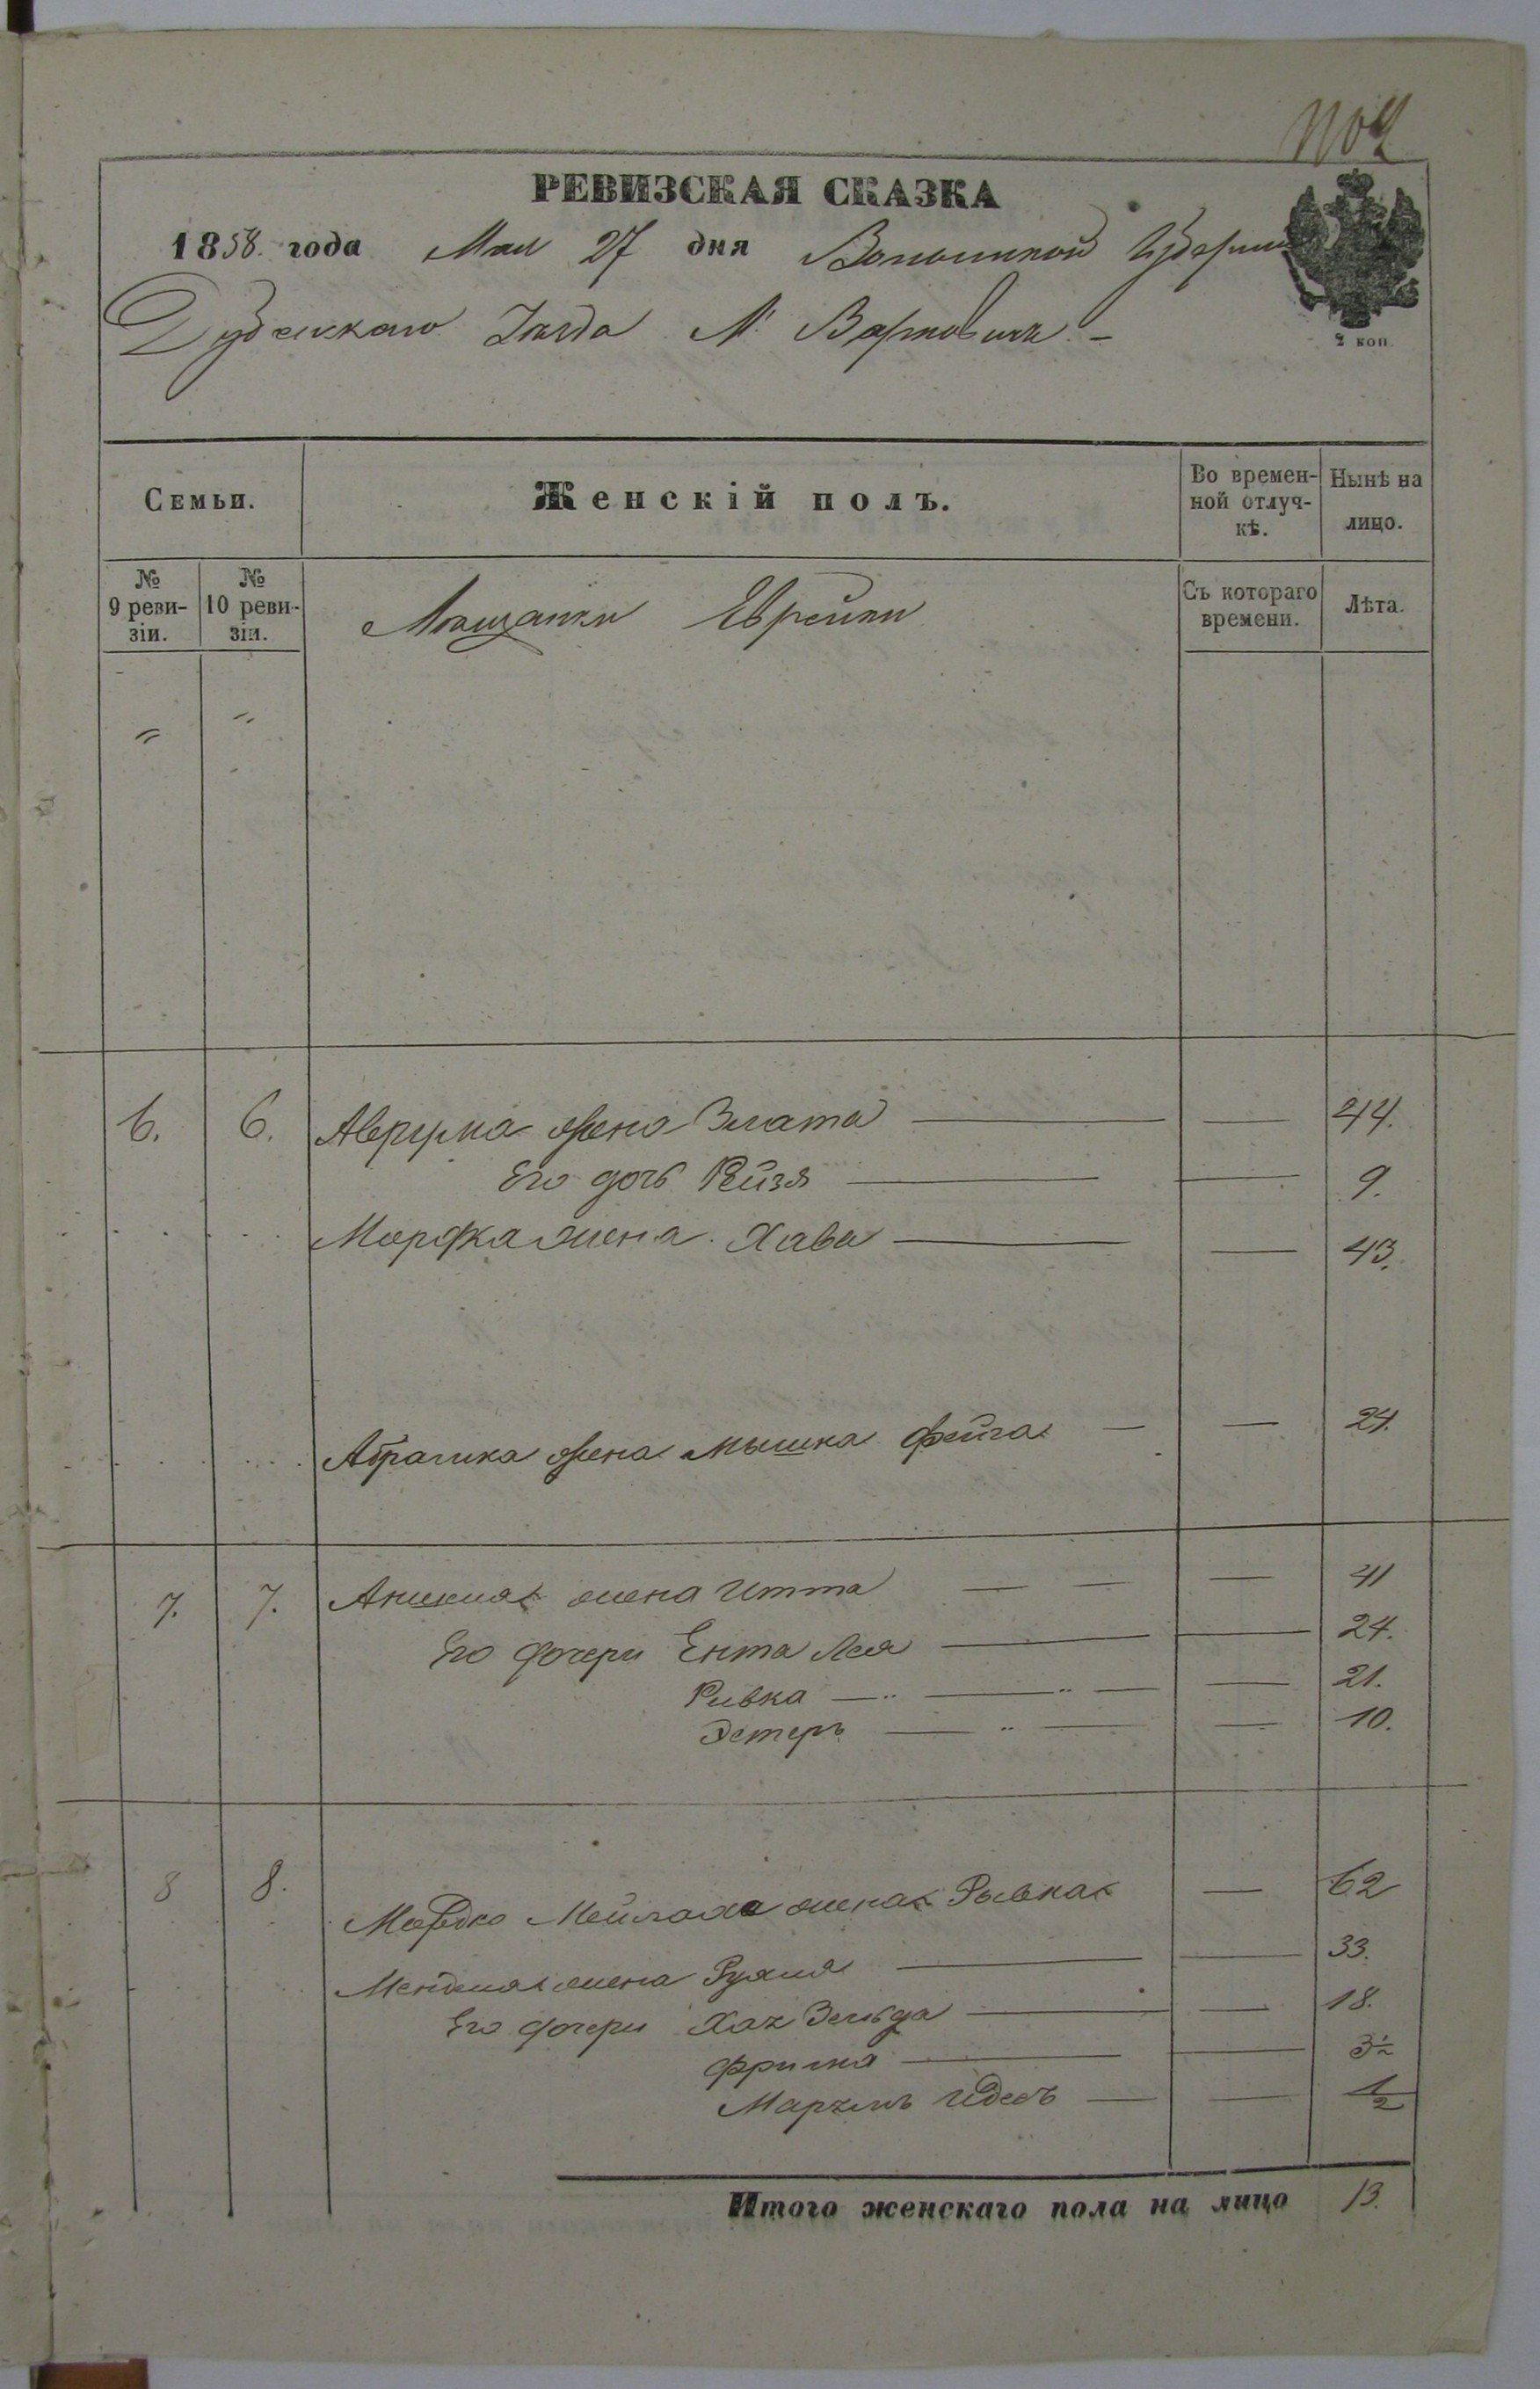 РЕВИЗСКАЯ СКАЗКА
1858. года Мая 27 дня Волынской Губернии
Дубенскаго Уезда М. Варковичь. –
2 коп.
Семьи.
Женскій полъ.
Во времен-
ной отлуч-
кѣ.
Нынѣ на
лицо.
№
9 реви-
зіи.
№
10 реви-
зіи.
Мещанки Еврейки
Съ котораго
времени.
Лѣта.
6. 6. Аврума жена Злата — — 44.
Его дочь Рейзя — — 9.
Мордка жена Хава — — 43.
Абрамка жена Мышка Фейга — — 24.
7. 7. жена Итта — — — 41
Его дочери Ента Лея — — 24.
Ривка — „ — „ — — 21.
Эстеръ — „ — — 10.
8 8. Мордко Мейлаха жена Рывка — 62
Менделя жена Рухля — — 33.
Его дочери Зельда — — 18.
Фрима — — 3½
Идесъ — — ½
Итого женскаго пола на лицо 13.